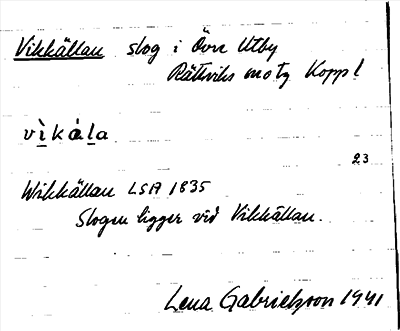 Vikkällan slog i Övre Utby
Rättviks mot g Koppl
vìkȧla
23
Wikkällan LSA 1835
Slogen ligger vid Vikkällan.
Lena Gabrielsson 1941